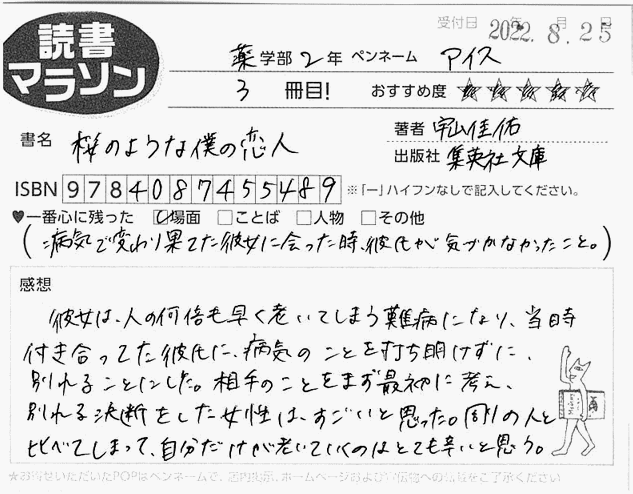 受付日 年 月 日
2022. 8. 25
読書
マラソン
薬学部 2年 ペンネーム アイス
3 冊目! おすすめ度 ★★★★★
書名 桜のような僕の恋人
著者 宇山佳佑
出版社 集英社文庫
ISBN 9784087455489 ※「ー」ハイフンなしで記入してください。
♥一番心に残った ☑場面 □ことば □人物 □その他
(病気で変わり果てた彼女に会った時、彼氏が気づかなかったこと。)
感想
彼女は、人の何倍も早く老いてしまう難病になり、当時
付き合ってた彼氏に、病気のことを打ち明けずに、
別れることにした。相手のことをまず最初に考え、
別れる決断をした女性は、すごいと思った。周りの人と
比べてしまって、自分だけが老いていくのはとても辛いと思う。
★お寄せいただいたPOPはペンネームで、店内掲示、ホームページおよび宣伝物への掲載をご了承ください